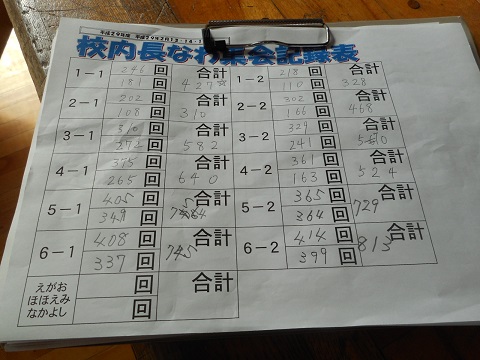 校内長なわ集会記録表
1-1 246 回 合計 1-2 218 回 合計
181 回 427 110 回 328
2-1 202 回 合計 2-2 302 回 合計
108 回 310 166 回 468
3-1 310 回 合計 3-2 329 回 合計
272 回 582 241 回
4-1 375 回 合計 4-2 361 回 合計
265 回 640 163 回 524
5-1 405 回 合計 5-2 365 回 合計
349 回 364 回 729
6-1 408 回 合計 6-2 414 回 合計
337 回 745 399 回 813
えがお 回 合計
ほほえみ
なかよし 回